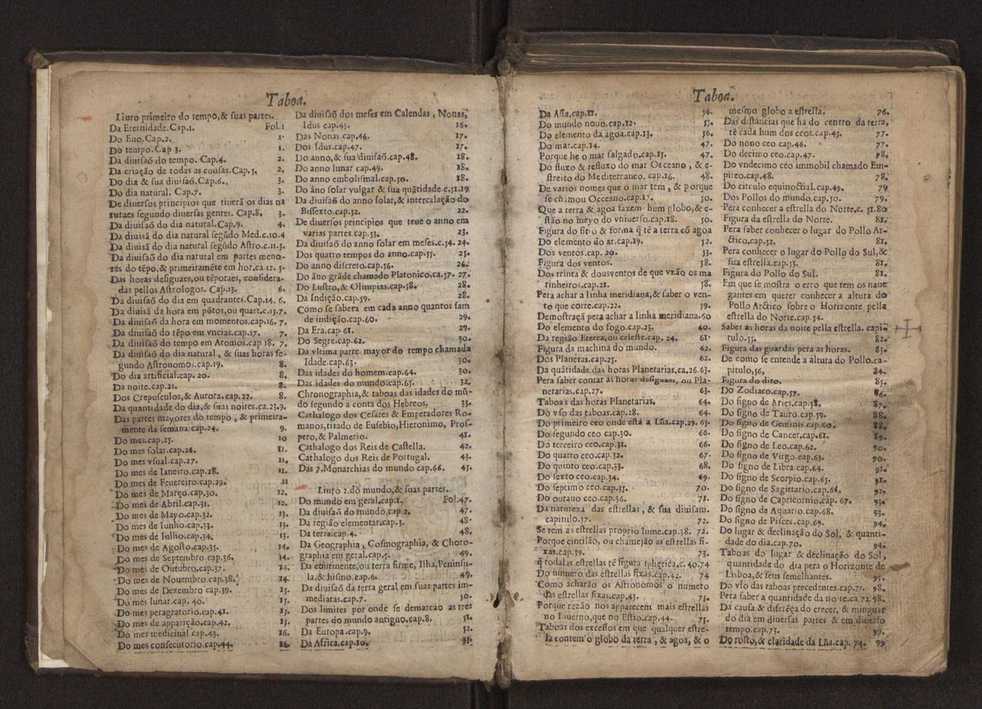 Taboa.
Liuro primeiro do tempo, & suas partes.
Da Eternidade. Cap. 1. Fol. 1
Do Euo. Cap. 2. 1.
Do tempo. Cap 3. 1.
Da diuisaõ do tempo. Cap. 4. 2.
Da criação de todas as cousas. Cap. 5. 2.
Do dia & sua diuisaõ. Cap. 6. 3.
Do dia natural. Cap. 7. 3.
De diuersos principios que tiuerã os dias na
turaes segundo diuersas gentes. Cap. 8, 3.
Da diuisaõ do dia natural. Cap. 9. 4
Da diuisã do dia natural segũdo Med. c. 10. 4
Da diuisã do dia natural segũdo Astro. c. 11. 5.
Da diuisaõ do dia natural em partes meno-
res do tẽpo, & primeiramẽte em hor. ca. 12. 5.
Das horas desiguaes, ou tẽporaes, considera-
das pellos Astrologos. Cap. 13. 6.
Da diuisaõ do dia em quadrantes. Cap. 14. 6.
Da diuisã da hora em põtos, ou quart. c. 15. 7.
Da diuisaõ da hora em momentos. cap. 16. 7.
Da diuisaõ do tẽpo em vncias. cap. 17. 7.
Da diuisaõ do tempo em Atomos. cap 18. 7.
Da diuisaõ do dia natural, & suas horas se-
gundo Astronomos. cap. 19. 8.
Do dia artificial. cap. 20. 8.
Da noite. cap. 21. 8.
Dos Crepusculos, & Aurora. cap. 22. 8.
Da quantidade do dia, & suas noites. ca. 23. 9.
Das partes mayores do tempo, & primeira-
mente da semana. cap. 24. 9.
Do mes. cap. 25. 10
Do mes solar. cap. 26. 11.
Do mes vsual. cap. 27. 11.
Do mes de Ianeiro. cap. 28. 11.
Do mes de Feuereiro. cap. 29. 11
Do mes de Março. cap. 30. 12.
Do mes de Abril. cap. 31. 12.
Do mes de Mayo. cap. 32. 13.
Do mes de Iunho. cap. 33. 13.
Do mes de Iulho. cap. 34. 13.
Do mes de Agosto. cap. 35. 14.
Do mes de Septembro. cap. 36. 14.
Do mes de Outubro. cap. 37. 14.
Do mes de Nouembro. cap. 38. 14.
Do mes de Dezembro cap. 39. 15.
Do mes lunar. cap. 40. 15.
Do mes peragratorio. cap. 41. 15.
Do mes de apparição. cap. 42. 15.
Do mes medicinal cap. 43. 16.
Do mes consecutorio. cap. 44. 16.
Da diuisaõ dos meses em Calendas, Nonas,
Idus cap. 45. 16.
Das Nonas. cap. 46. 17.
Dos Idus. cap. 47. 17.
Do anno, & sua diuisaõ. cap. 48. 18.
Do anno lunar cap. 49. 18.
Do anno embolismal. cap. 50. 18.
Do ãno solar vulgar & sua quãtidade. c. 51. 19
Da diuisaõ do anno solar, & intercalação do
Bissexto. cap. 52. 22.
De diuersos principios que teue o anno em
varias partes. cap. 53. 23.
Da diuisaõ do anno solar em meses. c. 54. 24.
Dos quatro tempos do anno. cap. 55. 25.
Do anno discreto. cap. 56. 26.
Do ãno grãde chamado Platonico. ca. 57. 27.
Do Lustro, & Olimpias. cap. 58. 28.
Da Indição. cap. 59. 28.
Como se sabera em cada anno quantos sam
de indição. cap. 60. 29.
Da Era. cap 61. 29.
Do Segre. cap. 62. 30.
Da vltima parte mayor do tempo chamada
Idade. cap. 63. 30.
Das idades do homem. cap. 64. 30.
Das idades do mundo. cap. 65. 32.
Chronographia, & taboas das idades do mũ-
do segundo a conta dos Hebreos. 33.
Cathalogo dos Cesares & Emperadores Ro-
manos, tirado de Eusebio, Hieronimo, Pros-
pero, & Palmerio. 41.
Cathalogo dos Reis de Castella. 42.
Cathalogo dos Reis de Portugal. 43.
Das 7. Monarchias do mundo cap. 66. 45.
Liuro 2. do mundo, & suas partes.
Do mundo em geral. cap. 1. Fol. 47.
Da diuisaõ do mundo. cap. 2. 47.
Da região elementar. cap. 3. 48.
Da terra. cap. 4. 48.
Da Geographia, Cosmographia, & Choro-
graphia em geral. cap. 5. 49.
Da continente, ou terra firme, Ilha, Peninsu-
la, & Istmo. cap. 6. 49.
Da diuisaõ da terra geral em suas partes im-
mediatas. cap. 7. 50.
Dos limites por onde se demarcaõ as tres
partes do mundo antigno. cap. 8. 51.
Da Europa. cap. 9. 52.
Da Africa. cap. 10. 53.
Taboa.
Da Asia, cap. 11. 54.
Do mundo nouo. cap. 12. 55.
Do elemento da agoa. cap. 13. 56.
Do mar. cap. 14. 47.
Porque he o mar salgado. cap. 15. 47.
Do fluxo & refluxo do mar Occeano, & e-
streito do Mediterraneo. cap. 16. 48.
De varios nomes que o mar tem, & porque
se chamou Occeano. cap. 17. 50.
Que a terra & agoa fazem hum globo, & e-
stão no meyo do vniuerso. cap. 18. 50.
Figura do sitio & forma q̃ tẽ a terra cõ agoa
Do elemento do ar. cap. 19. 52.
Dos ventos. cap. 20. 53.
Figura dos ventos. 58.
Dos trinta & dous ventos de que vsão os ma
rinheiros. cap. 21. 58.
Pera achar a linha meridiana, & saber o ven-
to que corre. cap. 22. 59.
Demostraçã pera achar a linha meridiana. 60
Do elemento do fogo. cap. 23. 60.
Da região Eterea, ou celeste. cap. 24. 61.
Figura da machina do mundo. 62.
Dos Planetas. cap. 25. 62.
Da quãtidade das horas Planetarias. ca. 26. 63.
Pera saber contar as horas desiguaes, ou Pla-
netarias. cap. 27. 63.
Taboas das horas Planetarias. 64.
Do vso das taboas. cap. 28. 64.
Do primeiro ceo onde está a Lũa. cap. 29. 65.
Do segundo ceo cap. 30. 66.
Do terceiro ceo. cap. 31. 66.
Do quarto ceo. cap. 32. 67.
Do quinto ceo. cap. 33. 68.
Do sexto ceo. cap. 34. 69.
Do septimo ceo. cap. 35. 70.
Do outauo ceo. cap. 36. 71.
Da natureza das estrellas, & sua diuisam.
capitulo. 37. 72.
Se tem as estrellas proprio lume. cap. 38. 72.
Porque cintilão, ou chamejão as estrellas fi-
xas. cap. 39. 73.
q̃ todalas estrellas tẽ figura spherica. c. 40. 74
Do numero das estrellas fixas. cap. 42. 74
Como acharão os Astronomos o numero
das estrellas fixas. cap. 43. 75.
Porque rezão nos apparecem mais estrellas
no Inuerno, que no Estio. cap. 44. 75.
Taboas dos excessos em que qualquer estre-
la contem o globo da terra, & agoa, & o
mesmo globo a estrella. 76.
Das distancias que ha do centro da terra,
tè cada hum dos ceos. cap. 45. 77.
Do nono ceo cap. 46. 77.
Do decimo ceo. cap. 47. 78.
Do vndecimo ceo immobil chamado Em-
pireo. cap. 48. 78.
Do circulo equinoctial. cap. 49. 79
Dos Pollos do mundo. cap. 50. 79.
Pera conhecer a estrella do Norte. c. 51. 80
Figura da estrella do Norte. 81.
Pera saber conhecer o lugar do Pollo Ar-
ctico. cap. 52. 81.
Pera conhecer o lugar do Pollo do Sul, &
sua estrella. cap. 53. 81.
Figura do Pollo do Sul. 81.
Em que se mostra o erro que tem os naue
gantes em querer conhecer a altura do
Pollo Arctico sobre o Horizonte pella
estrella do Norte. cap. 54.
Saber as horas da noite pella estrella. capi-
tulo. 55. 82.
Figura das guardas pera as horas. 83.
De como se entende a altura do Pollo. ca-
pitulo, 56. 84.
Figura do dito. 85.
Do Zodiaco. cap. 57. 86.
Do signo de Aries. cap. 58. 87.
Do signo de Tauro. cap. 59. 88.
Do signo de Geminis. cap. 60. 88.
Do signo de Cancer. cap. 61. 89.
Do signo de Leo. cap. 62. 90.
Do signo de Virgo. cap. 63. 90.
Do signo de Libra. cap. 64. 91.
Do signo de Scorpio. cap. 65. 91.
Do signo de Sagittario. cap. 66. 92.
Do signo de Capricornio. cap. 67. 93.
Do signo de Aquario. cap. 68. 93.
Do signo de Pisces. cap. 69. 94.
Do lugar & declinação do Sol, & quanti-
dade do dia. cap. 70. 94.
Taboas do lugar & declinação do Sol,
quantidade do dia pera o Horizonte de
Lisboa, & seus semelhantes. 95.
Do vso das taboas percedentes. cap. 71. 98.
Pera saber a quantidade da noite. ca. 72. 98.
Da causa & differẽça do crecer, & minguar
do dia em diuersas partes & em diuerso
tempo. cap. 73. 99.
Do rosto, & claridade da Lũa. cap. 74. 99